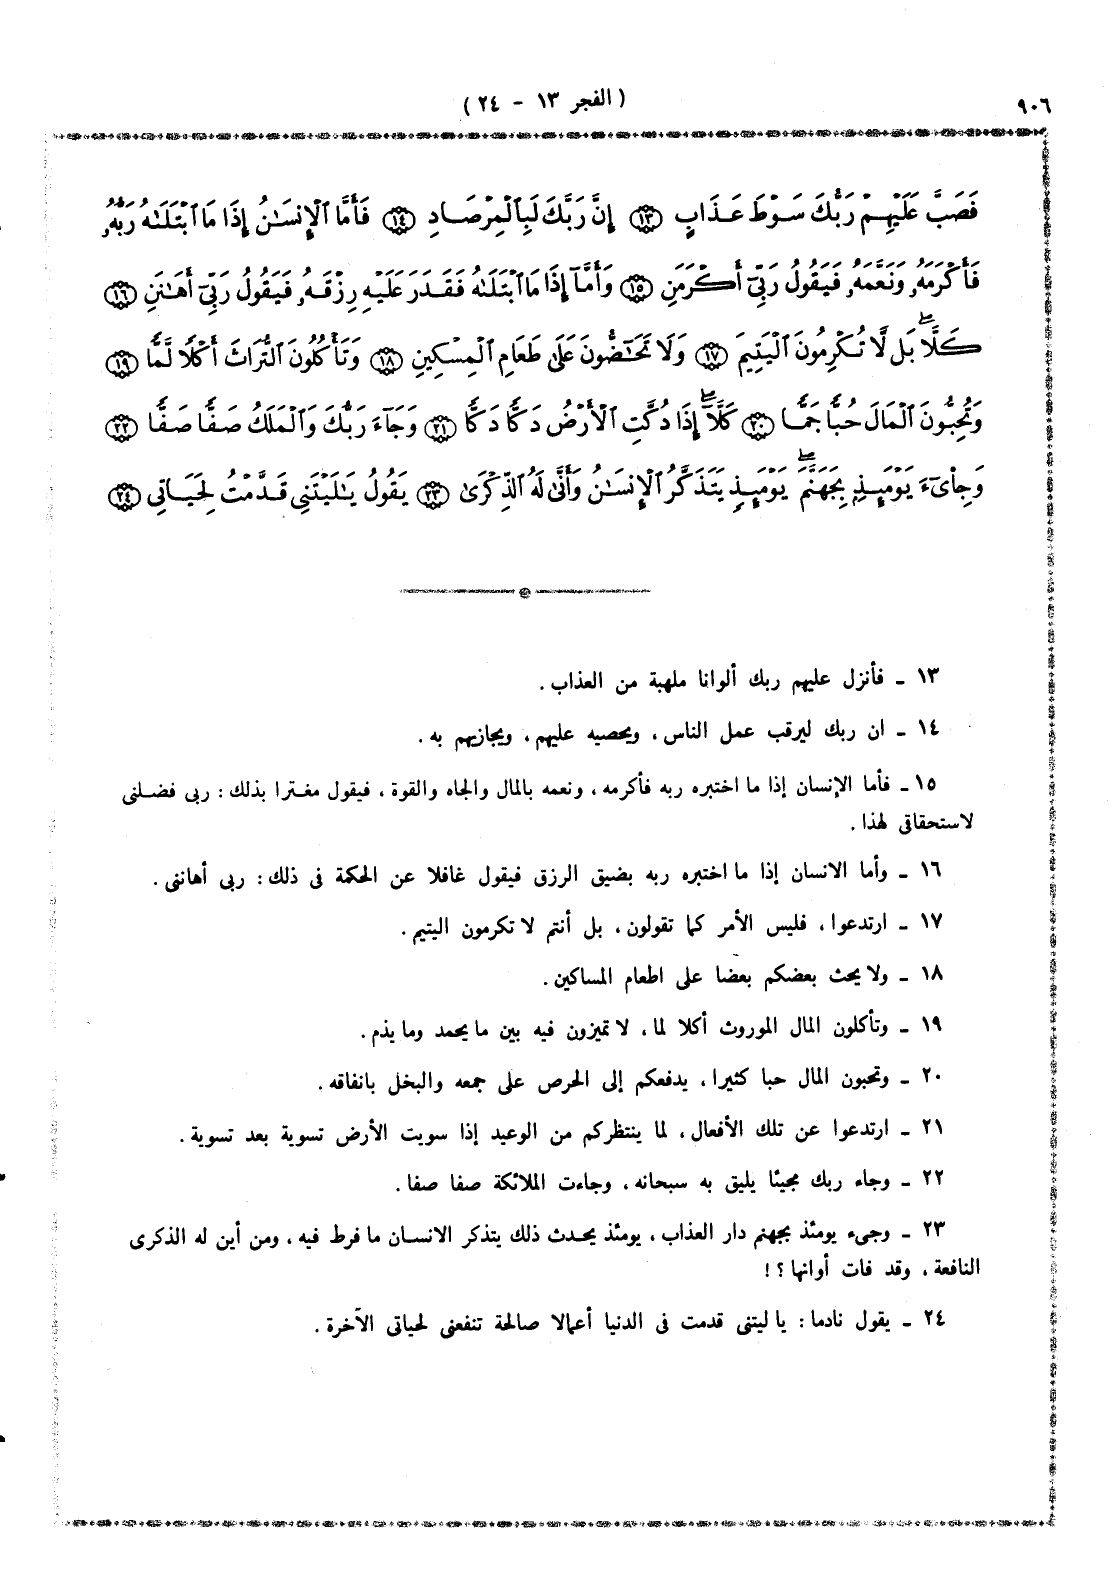 ٩٠٦
( الفجر ١٣ - ٢٤ )
فَصَبَّ عَلَيْهِمْ رَبُّكَ سَوْطَ عَذَابٍ ١٣ إِنَّ رَبَّكَ لَبِٱلْمِرْصَادِ ١٤ فَأَمَّا ٱلْإِنسَٰنُ إِذَا مَا ٱبْتَلَىٰهُ رَبُّهُۥ
فَأَكْرَمَهُۥ وَنَعَّمَهُۥ فَيَقُولُ رَبِّىٓ أَكْرَمَنِ ١٥ وَأَمَّآ إِذَا مَا ٱبْتَلَىٰهُ فَقَدَرَ عَلَيْهِ رِزْقَهُۥ فَيَقُولُ رَبِّىٓ أَهَٰنَنِ ١٦
كَلَّاۖ بَل لَّا تُكْرِمُونَ ٱلْيَتِيمَ ١٧ وَلَا تَحَٰٓضُّونَ عَلَىٰ طَعَامِ ٱلْمِسْكِينِ ١٨ وَتَأْكُلُونَ ٱلتُّرَاثَ أَكْلًا لَّمًّا ١٩
وَتُحِبُّونَ ٱلْمَالَ حُبًّا جَمًّا ٢٠ كَلَّآۖ إِذَا دُكَّتِ ٱلْأَرْضُ دَكًّا دَكًّا ٢١ وَجَآءَ رَبُّكَ وَٱلْمَلَكُ صَفًّا صَفًّا ٢٢
وَجِا۟ىٓءَ يَوْمَئِذٍۭ بِجَهَنَّمَۖ يَوْمَئِذٍ يَتَذَكَّرُ ٱلْإِنسَٰنُ وَأَنَّىٰ لَهُ ٱلذِّكْرَىٰ ٢٣ يَقُولُ يَٰلَيْتَنِى قَدَّمْتُ لِحَيَاتِى ٢٤
١٣ ـ فأنزل عليهم ربك ألوانا ملهبة من العذاب .
١٤ ـ ان ربك ليرقب عمل الناس ، ويحصيه عليهم ، ويجازيهم به .
١٥ ـ فأما الإنسان إذا ما اختبره ربه فأكرمه ، ونعمه بالمال والجاه والقوة ، فيقول مغترا بذلك : ربى فضلنى
لاستحقاقى لهذا .
١٦ ـ وأما الانسان إذا ما اختبره ربه بضيق الرزق فيقول غافلا عن الحكمة فى ذلك : ربى أهاننى .
١٧ ـ ارتدعوا ، فليس الأمر كما تقولون ، بل أنتم لا تكرمون اليتيم .
١٨ ـ ولا يحث بعضكم بعضا على اطعام المساكين .
١٩ ـ وتأكلون المال الموروث أكلا لما ، لا تميزون فيه بين ما يحمد وما يذم .
٢٠ ـ وتحبون المال حبا كثيرا ، يدفعكم إلى الحرص على جمعه والبخل بانفاقه .
٢١ ـ ارتدعوا عن تلك الأفعال ، لما ينتظركم من الوعيد إذا سويت الأرض تسوية بعد تسوية .
٢٢ ـ وجاء ربك مجيئا يليق به سبحانه ، وجاءت الملائكة صفا صفا .
٢٣ ـ وجىء يومئذ بجهنم دار العذاب ، يومئذ يحدث ذلك يتذكر الانسان ما فرط فيه ، ومن أين له الذكرى
النافعة ، وقد فات أوانها ؟ !
٢٤ ـ يقول نادما : يا ليتنى قدمت فى الدنيا أعمالا صالحة تنفعنى لحياتى الآخرة .